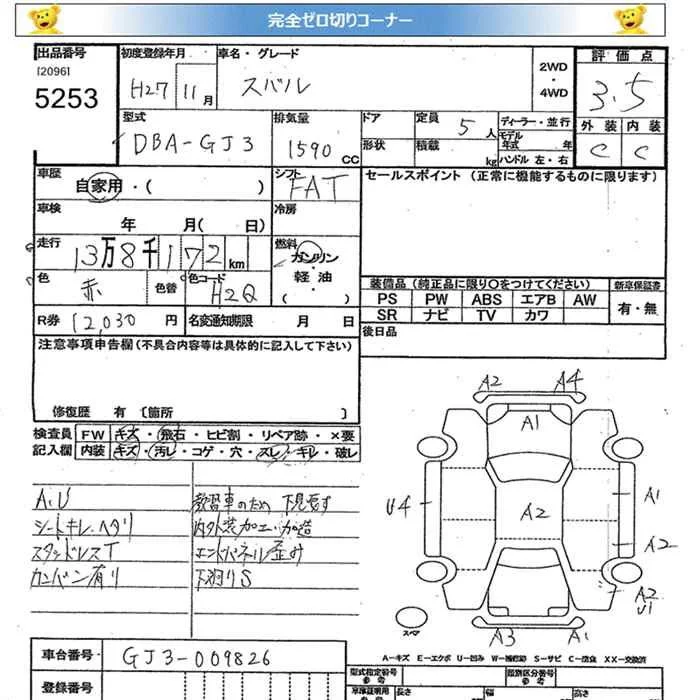 完全ゼロ切りコーナー
出品番号
[2096]
5253
初度登録年月
H27 11月
車名・グレード
スバル
2WD
・
4WD
評価点
3.5
外装 内装
C C
型式
DBA-GJ3
排気量
1590 CC
ドア
形状
定員 5人
積載 kg
ディーラー・並行
モデル年式 年
ハンドル 左・右
車歴
自家用・( )
シフト
FAT
セールスポイント(正常に機能するものに限ります)
車検
年 月( 日)
冷房
走行
13万8千172km
燃料
ガソリン
・
軽油
・
( )
色
赤
色替
色コード
H2Q
装備品(純正品に限り○をつけてください)
新車保証書
PS PW ABS エアB AW
有・無
SR ナビ TV カワ
R券 12,030円
名変通知期限 月 日
後日品
注意事項申告欄(不具合内容等は具体的に記入して下さい)
修復歴 有 [箇所 ]
検査員記入欄
FW キズ・飛石・ヒビ割・リペア跡・×要
内装 キズ・汚レ・コゲ・穴・スレ・キレ・破レ
A.U
シートキレ・ヘタリ
スタッドレスT
カンバン有り
教習車のため下見要す
内外装加工・加造
エンドパネル歪み
下廻りS
A2 A4
A1
U4
A2
A1
A2
A2
U1
スペア
A3 A1
A-キズ E-エクボ U-凹み W-補修跡 S-サビ C-腐食 XX-交換済
車台番号
GJ3-009826
登録番号
型式指定番号
参考
類別区分番号
参考
長さ
幅
高さ